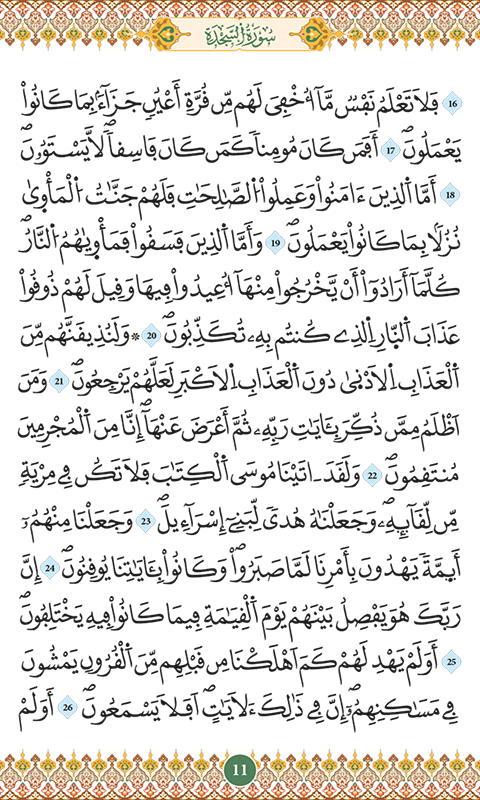 سُورَةُ السَّجْدَةِ
16 فَلَا تَعْلَمُ نَفْسٌ مَّآ أُخْفِيَ لَهُم مِّن قُرَّةِ أَعْيُنٍ جَزَآءَۢ بِمَا كَانُواْ
يَعْمَلُونَۖ 17 أَفَمَن كَانَ مُومِناً كَمَن كَانَ فَاسِقاًۖ لَّا يَسْتَوُۥنَۖ
18 أَمَّا اَلذِينَ ءَامَنُواْ وَعَمِلُواْ اُلصَّٰلِحَٰتِ فَلَهُمْ جَنَّٰتُ اُلْمَأْوَىٰ
نُزُلَاۢ بِمَا كَانُواْ يَعْمَلُونَۖ 19 وَأَمَّا اَلذِينَ فَسَقُواْ فَمَأْوٜيٰهُمُ اُلنَّارُۖ
كُلَّمَآ أَرَادُوٓاْ أَنْ يَّخْرُجُواْ مِنْهَآ أُعِيدُواْ فِيهَا وَقِيلَ لَهُمْ ذُوقُواْ
عَذَابَ اَلنّ۪ارِ اِلذِے كُنتُم بِهِۦ تُكَذِّبُونَۖ 20 ۞ وَلَنُذِيقَنَّهُم مِّنَ
اَلْعَذَابِ اِلَادْنٜىٰ دُونَ اَلْعَذَابِ اِلَاكْبَرِ لَعَلَّهُمْ يَرْجِعُونَۖ 21 وَمَنَ
اَظْلَمُ مِمَّن ذُكِّرَ بِـَٔايَٰتِ رَبِّهِۦ ثُمَّ أَعْرَضَ عَنْهَآۖ إِنَّا مِنَ اَلْمُجْرِمِينَ
مُنتَقِمُونَۖ 22 وَلَقَدَ ـ اتَيْنَا مُوسَى اَلْكِتَٰبَ فَلَا تَكُن فِے مِرْيَةٍ
مِّن لِّقَآئِهِۦۖ وَجَعَلْنَٰهُ هُدىً لِّبَنِےٓ إِسْرَآءِيلَۖ 23 وَجَعَلْنَا مِنْهُمُۥٓ
أَيِمَّةً يَهْدُونَ بِأَمْرِنَا لَمَّا صَبَرُواْۖ وَكَانُواْ بِـَٔايَٰتِنَا يُوقِنُونَۖ 24 إِنَّ
رَبَّكَ هُوَ يَفْصِلُ بَيْنَهُمْ يَوْمَ اَلْقِيَٰمَةِ فِيمَا كَانُواْ فِيهِ يَخْتَلِفُونَۖ
25 أَوَلَمْ يَهْدِ لَهُمْ كَمَ اَهْلَكْنَا مِن قَبْلِهِم مِّنَ اَلْقُرُونِ يَمْشُونَ
فِے مَسَٰكِنِهِمُۥٓۖ إِنَّ فِے ذَٰلِكَ ءَلَايَٰتٍۖ اَفَلَا يَسْمَعُونَۖ 26 أَوَلَمْ
11